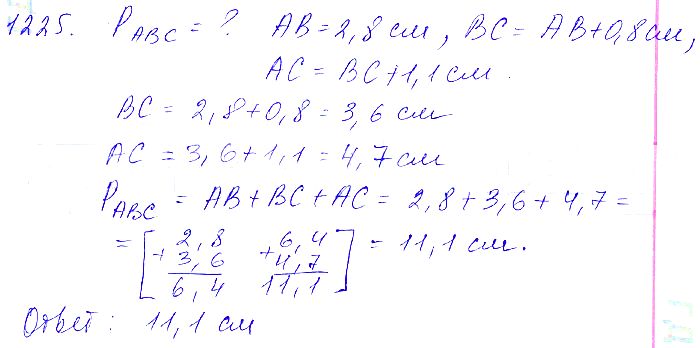 1225. P_ABC = ? AB = 2,8 см, BC = AB+0,8 см,
AC = BC+1,1 см.
BC = 2,8+0,8 = 3,6 см
AC = 3,6+1,1 = 4,7 см
P_ABC = AB+BC+AC = 2,8+3,6+4,7 =
= [ 2,8 + 3,6 6,4 6,4 + 4,7 11,1 ] = 11,1 см.
Ответ: 11,1 см